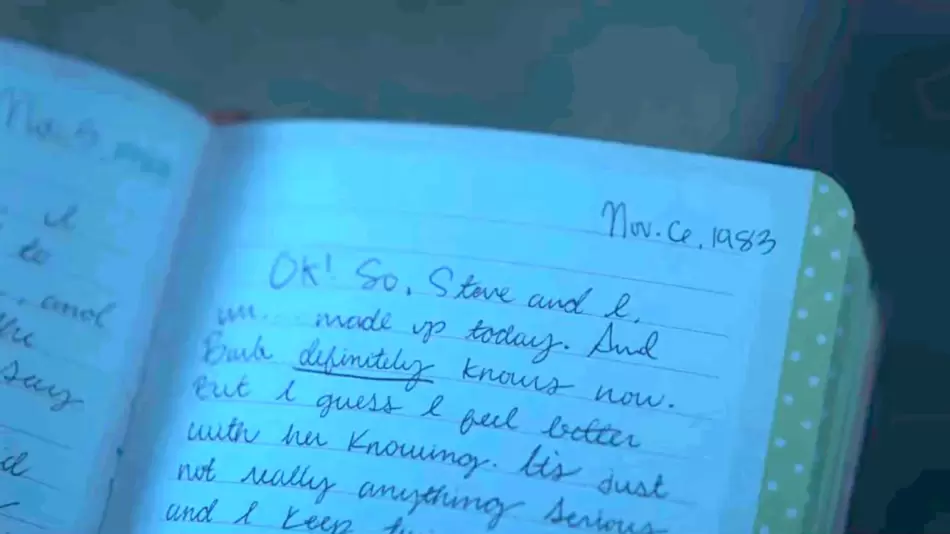 Nov. 6, 1983
OK! So, Steve and I,
um... made up today. And
Barb definitely knows now.
But I guess I feel better
with her knowing. It's just
not really anything serious
and I keep
I
to
and
say